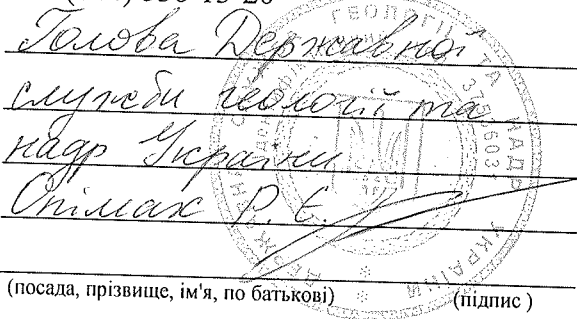 Голова Державної
служби геології та
надр України
Опімах Р. Є.
(посада, прізвище, ім'я, по батькові) (підпис )